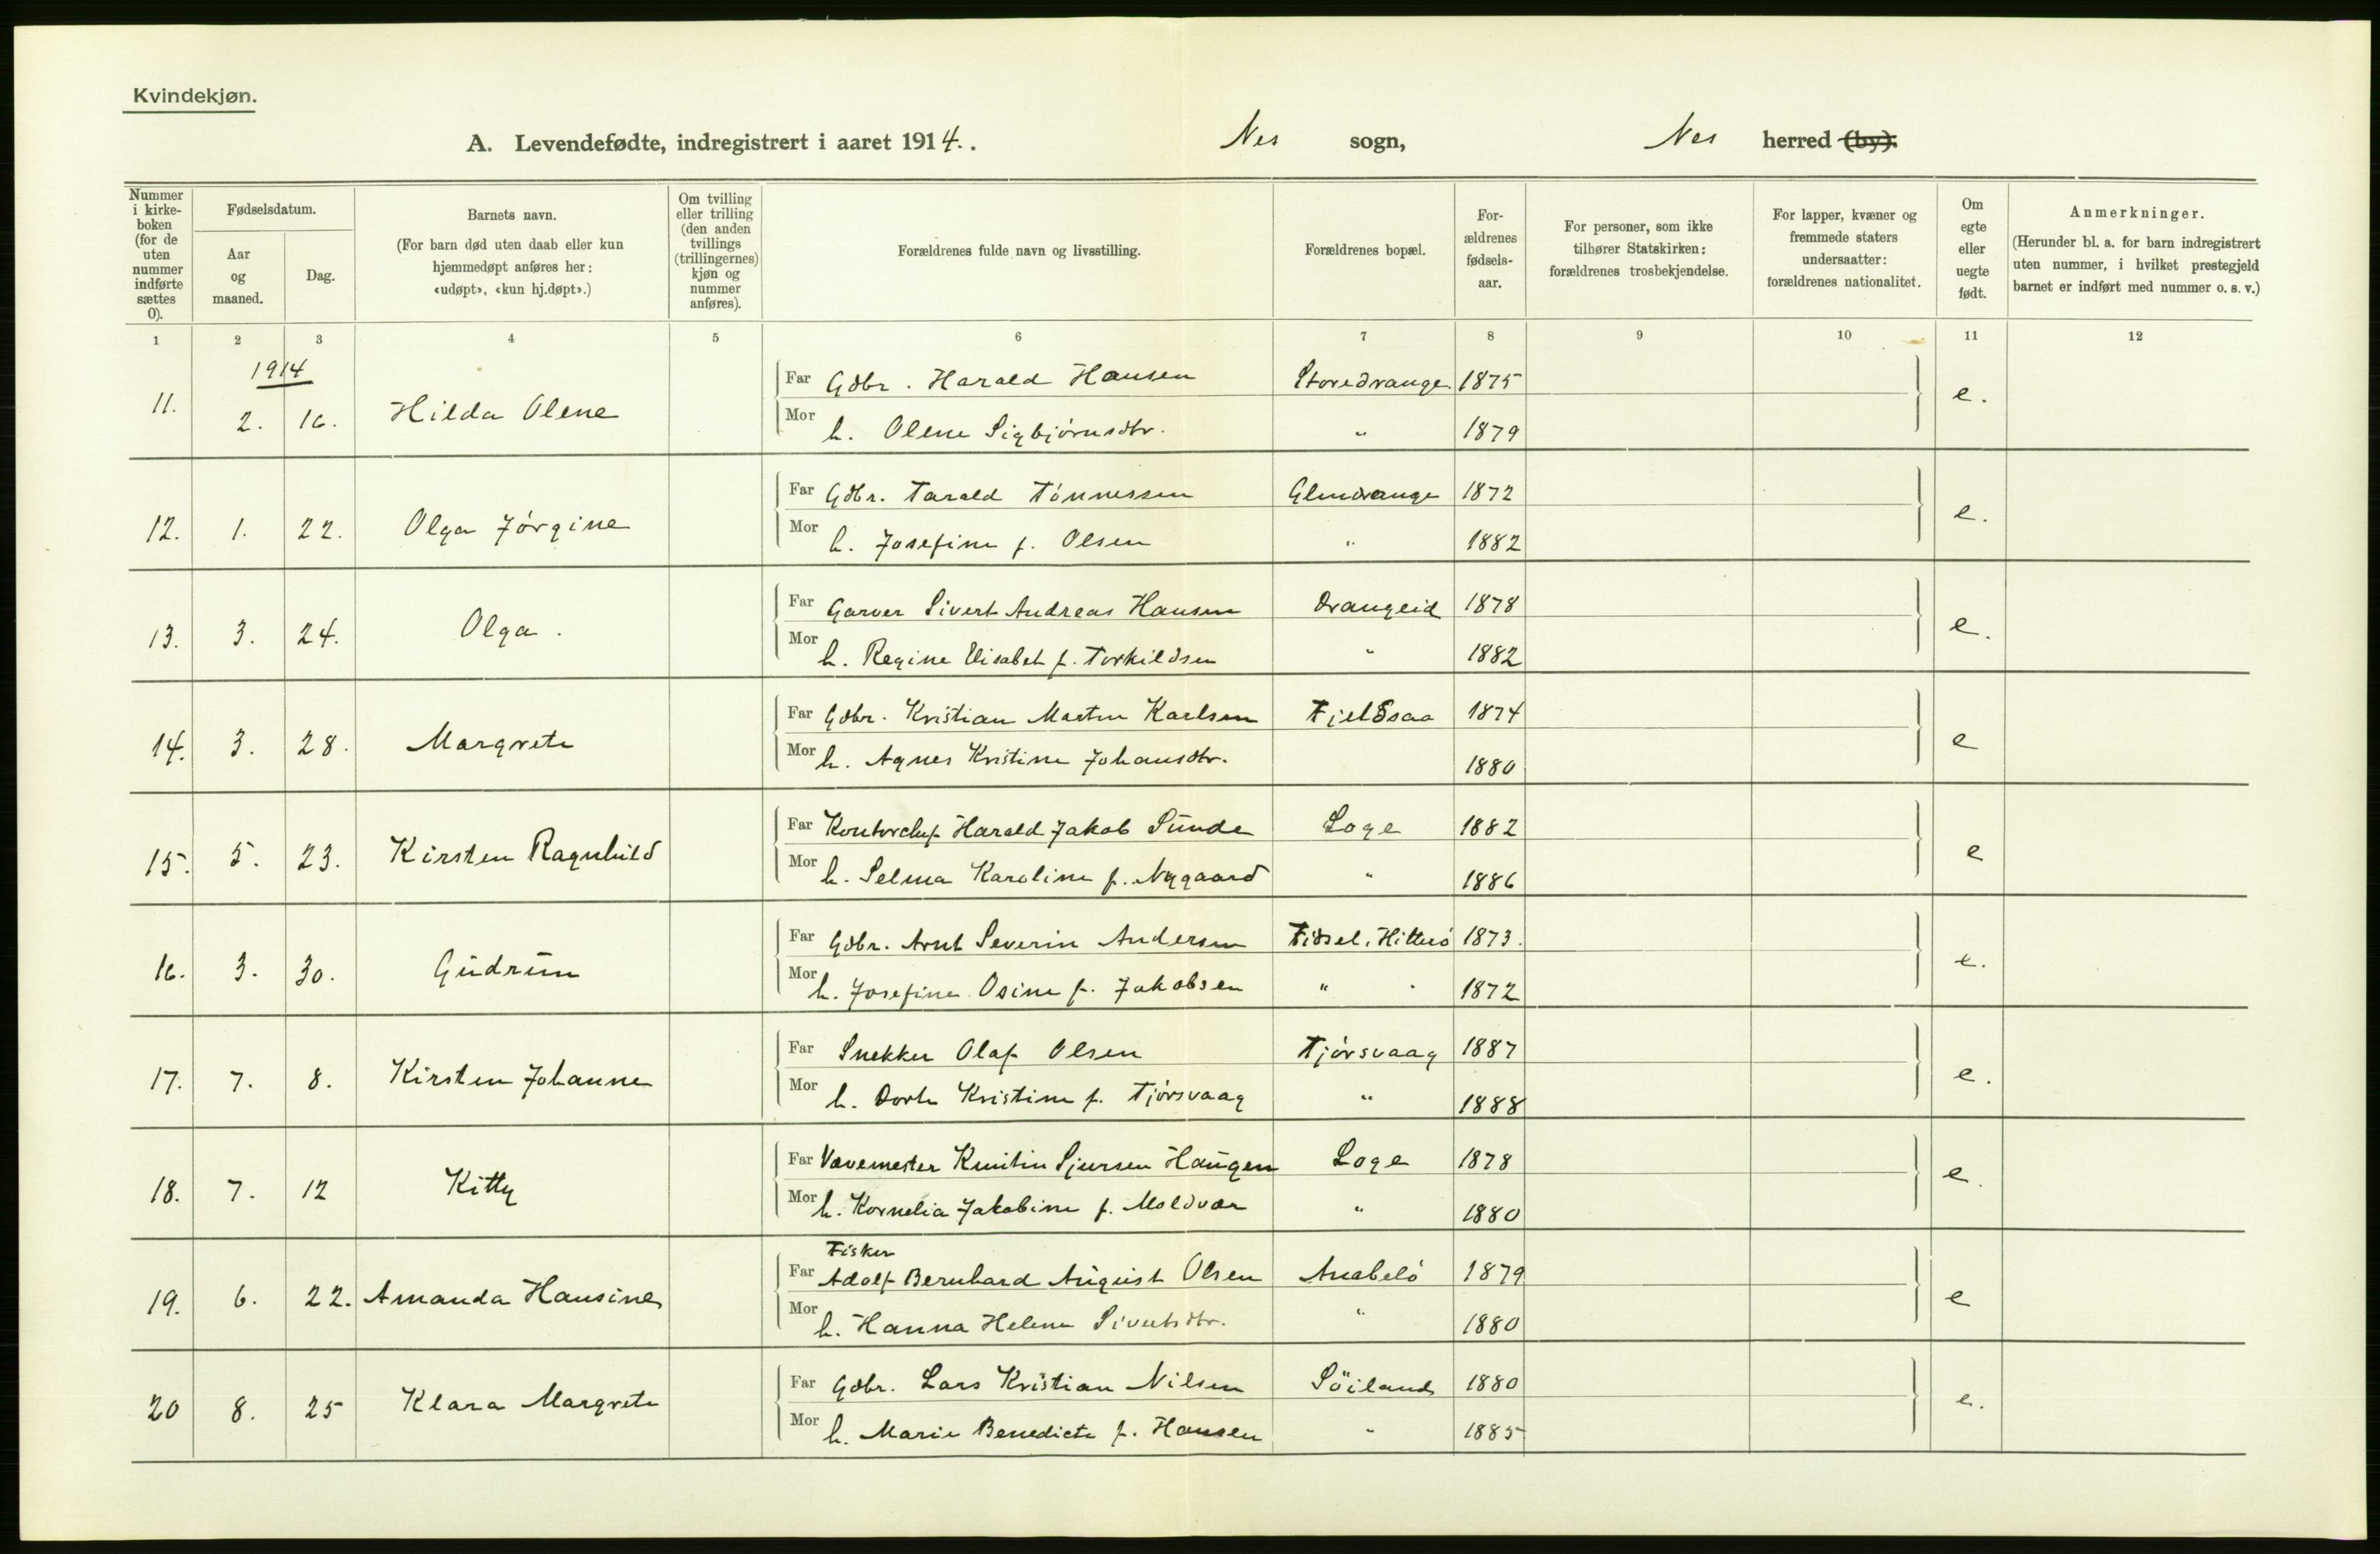 Kvindekjøn.
A. Levendefødte, indregistrert i aaret 1914. . Nes sogn, Nes herred (by).
Nummer i kirke-boken (for de uten nummer indførte sættes 0).
Fødselsdatum.
Aar og maaned.
Dag.
Barnets navn.
(For barn død uten daab eller kun hjemmedøpt anføres her: «udøpt», «kun hj.døpt».)
Om tvilling eller trilling (den anden tvillings (trillingernes) kjøn og nummer anføres).
Forældrenes fulde navn og livsstilling.
Forældrenes bopæl.
For-ældrenes fødsels-aar.
For personer, som ikke tilhører Statskirken: forældrenes trosbekjendelse.
For lapper, kvæner og fremmede staters undersaatter: forældrenes nationalitet.
Om egte eller uegte født.
Anmerkninger.
(Herunder bl. a. for barn indregistrert uten nummer, i hvilket prestegjeld barnet er indført med nummer o. s. v.)
1 2 3 4 5 6 7 8 9 10 11 12
1914
11. 2. 16. Hilda Olene Far Gdbr. Harald Hansen Storedrange 1875 e.
Mor h. Olene Sigbjørnsdtr. " 1879
12. 1. 22. Olga Jørgine Far Gdbr. Tarald Tønnessen Glendrange 1872 e.
Mor h. Josefine f. Olsen " 1882
13. 3. 24. Olga. Far Garver Sivert Andreas Hansen Drangeid 1878 e.
Mor h. Regine Elisabet f. Torkildsen " 1882
14. 3. 28. Margrete Far Gdbr. Kristian Martin Karlsen Fjeldsaa 1874 e
Mor h. Agnes Kristine Johansdtr. 1880
15. 5. 23. Kirsten Ragnhild Far Kontorchef Harald Jakob Sunde Loge 1882 e
Mor h. Selma Karoline f. Nygaard " 1886
16. 3. 30. Gudrun Far Gdbr. Arnt Severin Andersen Fidsel, Hitterø 1873. e.
Mor h. Josefine Osine f. Jakobsen " 1872
17. 7. 8. Kirsten Johanne Far Snekker Olaf Olsen Tjørsvaag 1887 e.
Mor h. Dorte Kristine f. Tjørsvaag " 1888
18. 7. 12 Kitty Far Vævemester Sjursen Haugen Loge 1878 e.
Mor h. Kornelia Jakobine f. Moldvær " 1880
Fisker
19. 6. 22. Amanda Hansine Far Adolf Bernhard August Olsen Anabelø 1879 e
Mor h. Hanna Helene Sivertsdtr. " 1880
20 8. 25 Klara Margrete Far Gdbr. Lars Kristian Nilsen Söiland 1880 e.
Mor h. Marie Benedicte f. Hansen " 1885